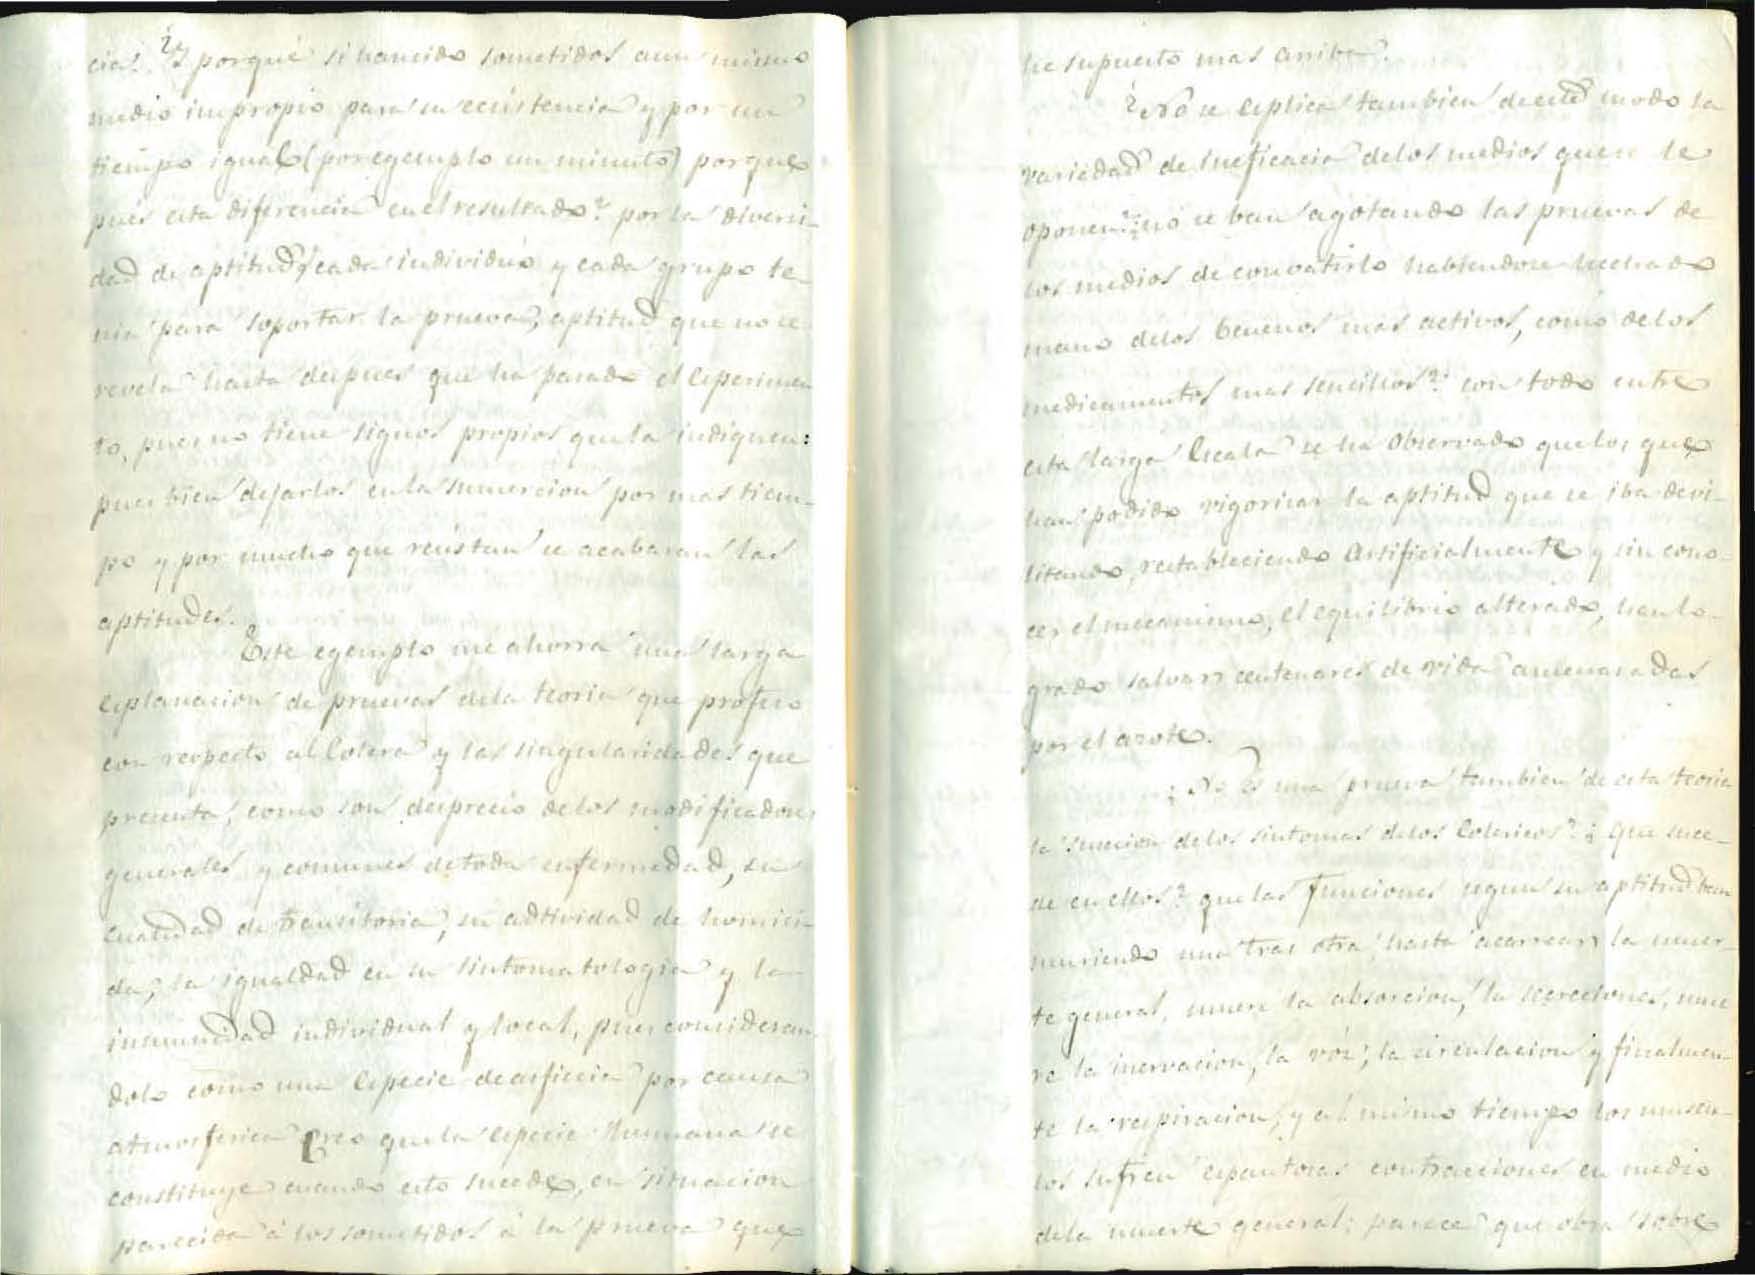 cia? ¿Y porqué si han sido sometidos a un mismo
medio impropio para su ecsistencia y por un
tiempo igual (por egemplo un minuto) porque
pues esta diferencia en el resultado? por la diversi-
dad de aptitud q.e cada individuo y cada grupo te-
nia para soportar la prueva, aptitud que no se
revela hasta despues que ha pasado el esperimen
to, pues no tiene signos propios que la indiquen:
pues bien dejarlos en la inmercion por mas tiem-
po y por mucho que resistan se acabaran las
aptitudes.
Este egemplo me ahorra una larga
esplanacion de pruevas de la teoria que profeso
con respecto al Colera y las singularidades que
presenta, como son desprecio de los modificadores
generales y comunes de toda enfermedad, su
cualidad de transitoria, su adtividad de homici-
da, la igualdad en su sintomatologia y la
inmunidad individual y local, pues consideran
dolo como una especie de asficcia por causa
atmosferica Creo que la especie humana se
constituye cuando esto sucede, en situacion
parecida á los sometidos á la prueva que
he supuesto mas arriba.
¿No se esplica tambien de este modo la
variedad de ineficacia de los medios que se le
oponen? ¿no se ban agotando las pruevas de
los medios de convatirlo habiendose hechado
mano de los benenos mas activos, como de los
medicamentos mas sencillos? con todo entre
esta larga escala se ha observado que los que
han podido vigorizar la aptitud que se iba devi-
litando, restableciendo artificialmente y sin cono-
cer el mecanismo, el equilibrio alterado, han lo-
grado salvar centenares de vida amenazadas
por el azote.
¿No es una prueva tambien de esta teoria
la sucecion de los sintomas de los Colericos? ¿Que suce-
de en ellos? que las funciones segun su aptitud ban
muriendo una tras otra hasta acarrear la muer-
te general, muere la absorcion, la secreciones, mue
re la inervacion, la vóz, la circulacion y finalmen-
te la respiracion, y al mismo tiempo los muscu-
los sufren espantosas contracciones en medio
de la muerte general; parece que obra sobre